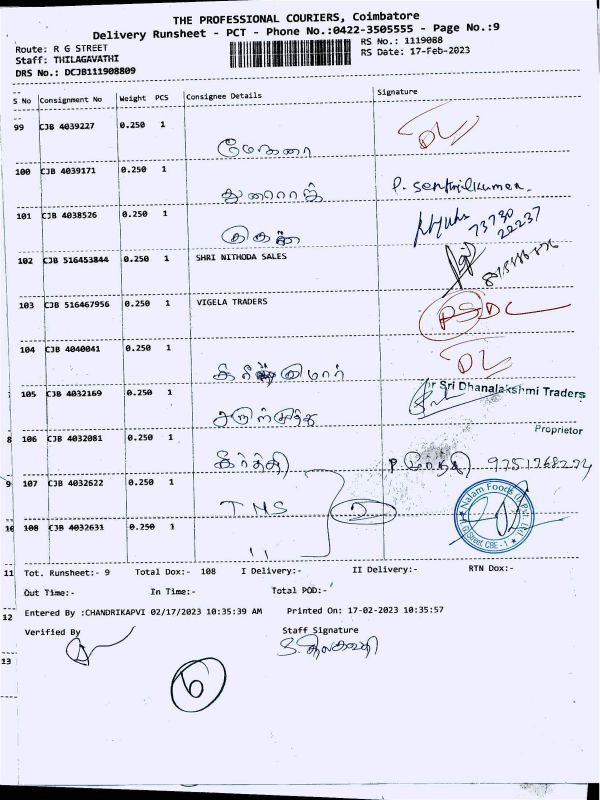 THE PROFESSIONAL COURIERS, Coimbatore
Delivery Runsheet - PCT - Phone No.:0422-3505555 - Page No.:9
Route: R G STREET
RS No.: 1119088
Staff: THILAGAVATHI
RS Date: 17-Feb-2023
DRS No.: DCJB111908809
S No Consignment No Weight PCS Consignee Details Signature
99 CJB 4039227 0.250 1
DL
100 CJB 4039171 0.250 1
P. Senthilkumar.
101 CJB 4038526 0.250 1
73730
22237
102 CJB 516453844 0.250 1 SHRI NITHODA SALES
103 CJB 516467956 0.250 1 VIGELA TRADERS
104 CJB 4040041 0.250 1
DL
Sri Dhanalakshmi Traders
105 CJB 4032169 0.250 1
Proprietor
8 106 CJB 4032081 0.250 1
கீர்த்தி
9 107 CJB 4032622 0.250 1
TMS
Nalam Foods (I) Pvt. Ltd.
R.G Street, CBE - 1
10 108 CJB 4032631 0.250 1
11
11 Tot. Runsheet:- 9 Total Dox:- 108 I Delivery:- II Delivery:- RTN Dox:-
Out Time:- In Time:- Total POD:-
12 Entered By :CHANDRIKAPVI 02/17/2023 10:35:39 AM Printed On: 17-02-2023 10:35:57
Verified By Staff Signature
S. திலகவதி
13
6